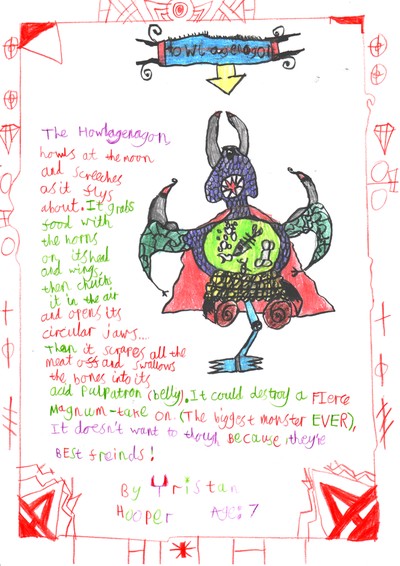 Howlagenagon
The Howlagenagon,
howls at the moon
and screeches
as it flys
about. It grabs
food with
the horns
on its head
and wings,
then chucks
it in the air
and opens its
circular jaws...
Then it scrapes all the
meat off and swallows
the bones into its
acid pulpatron (belly). It could destroy a Fierce
Magnum-take on. (The biggest monster EVER),
It doesn't want to though because they're
BEST freinds!
By Yristan
Hooper AGE: 7